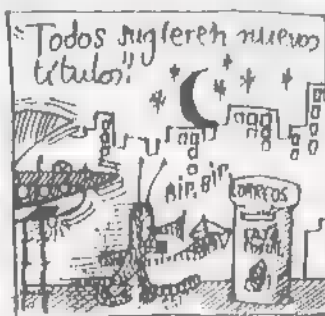 Todos sugieren nuevos
títulos!!
AIR, AIR
CORREOS